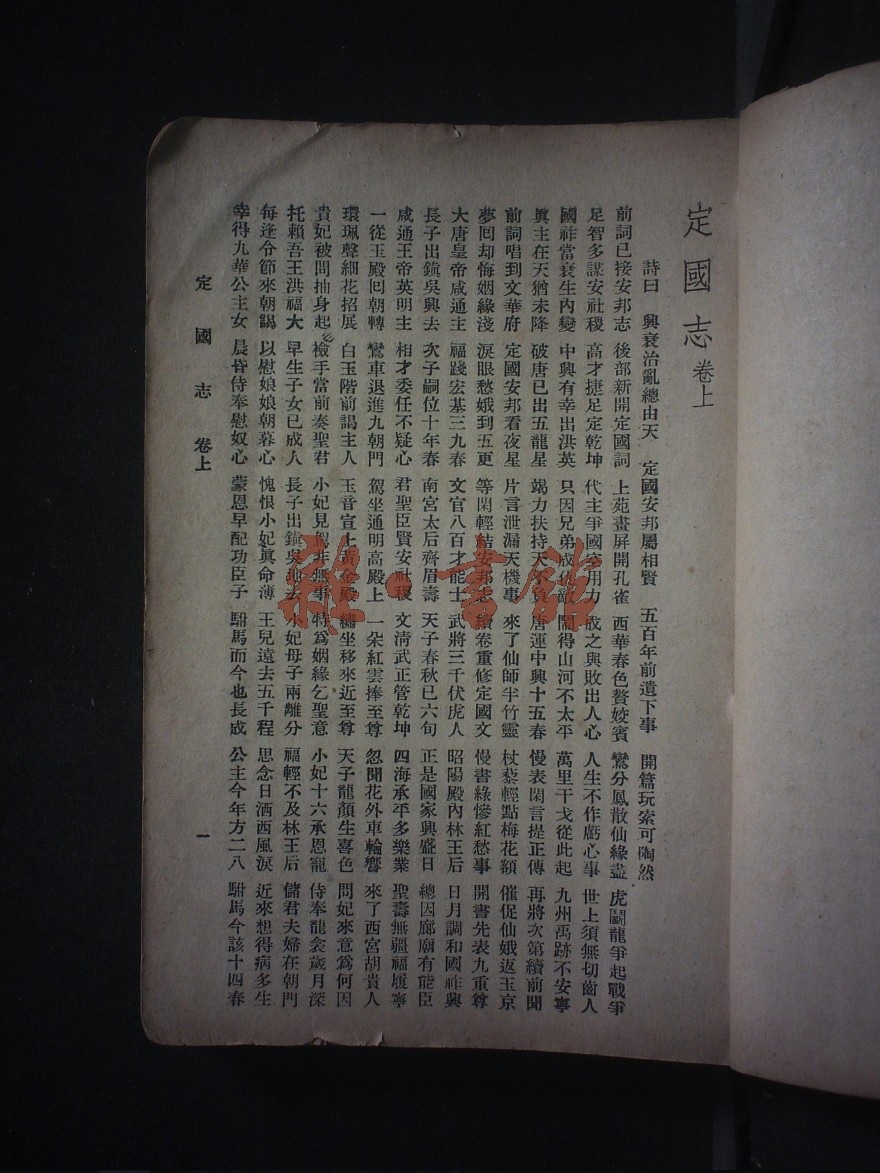 定國志 卷上
詩曰 興衰治亂總由天 定國安邦屬相賢 五百年前遺下事 開篇玩索可陶然
前詞已接安邦志 後部新開定國詞 上苑畫屏開孔雀 西華春色贅姣賓 鸞分鳳散仙緣盡 虎鬭龍爭起戰爭
足智多謀安社稷 高才捷足定乾坤 代主爭國空用力 成之與敗出人心 人生不作虧心事 世上須無切齒人
國祚當衰生內變 中興有幸出洪英 只因兄弟成仇敵 鬧得山河不太平 萬里干戈從此起 九州禹跡不安寧
眞主在天猶未降 破唐已出五龍星 竭力扶持天不負 唐運中興十五春 慢表閑言提正傳 再將次第續前聞
前詞唱到文華府 定國安邦看夜星 片言泄漏天機事 來了仙師半竹靈 杖藜輕點梅花額 催促仙娥返玉京
夢回却悔姻緣淺 淚眼愁娥到五更 等閑輕結安邦志 續卷重修定國文 慢書綠慘紅愁事 開書先表九重尊
大唐皇帝咸通主 福踐宏基三九春 文官八百才能士 武將三千伏虎人 昭陽殿內林王后 日月調和國祚興
長子出鎭吳興去 次子嗣位十年春 南宮太后齊眉壽 天子春秋已六旬 正是國家興盛日 總因廊廟有能臣
咸通王帝英明主 相才委任不疑心 君聖臣賢安社稷 文清武正管乾坤 四海承平多樂業 聖壽無疆福履寧
一從玉殿回朝轉 鸞車退進九朝門 駕坐通明高殿上 一朵紅雲捧至尊 忽聞花外車輪響 來了西宮胡貴人
環珮聲細花招展 白玉階前謁主人 玉音宣上黃金殿 繡坐移來近至尊 天子龍顏生喜色 問妃來意爲何因
貴妃被問抽身起 襝手當前奏聖君 小妃見駕非無事 特爲姻緣乞聖意 小妃十六承恩寵 侍奉龍衾歲月深
托賴吾王洪福大 早生子女已成人 長子出鎭吳地去 小妃母子兩離分 福輕不及林王后 儲君夫婦在朝門
每逢令節來朝謁 以慰娘娘朝暮心 愧恨小妃眞命薄 王兒遠去五千程 思念日洒西風淚 近來想得病多生
幸得九華公主女 晨昏侍奉慰奴心 蒙恩早配功臣子 駙馬而今也長成 公主今年方二八 駙馬今該十四春
定國志 卷上 一
雜·書館